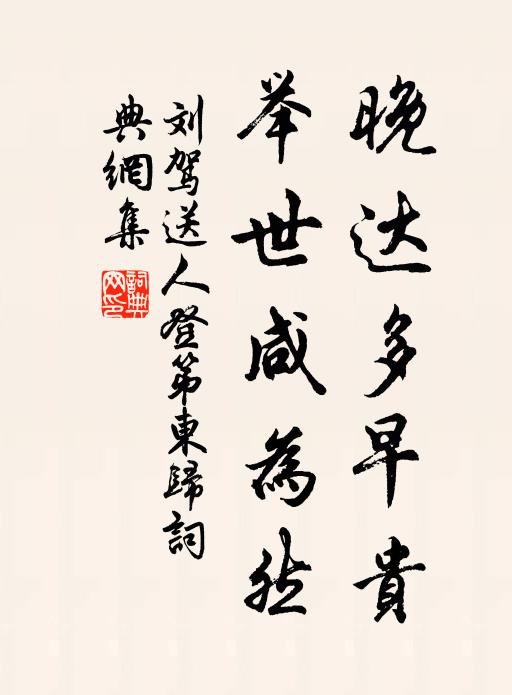 晚达多早貴
举世咸為然
刘驾送人登第東歸詞
典網集
詞典
网印